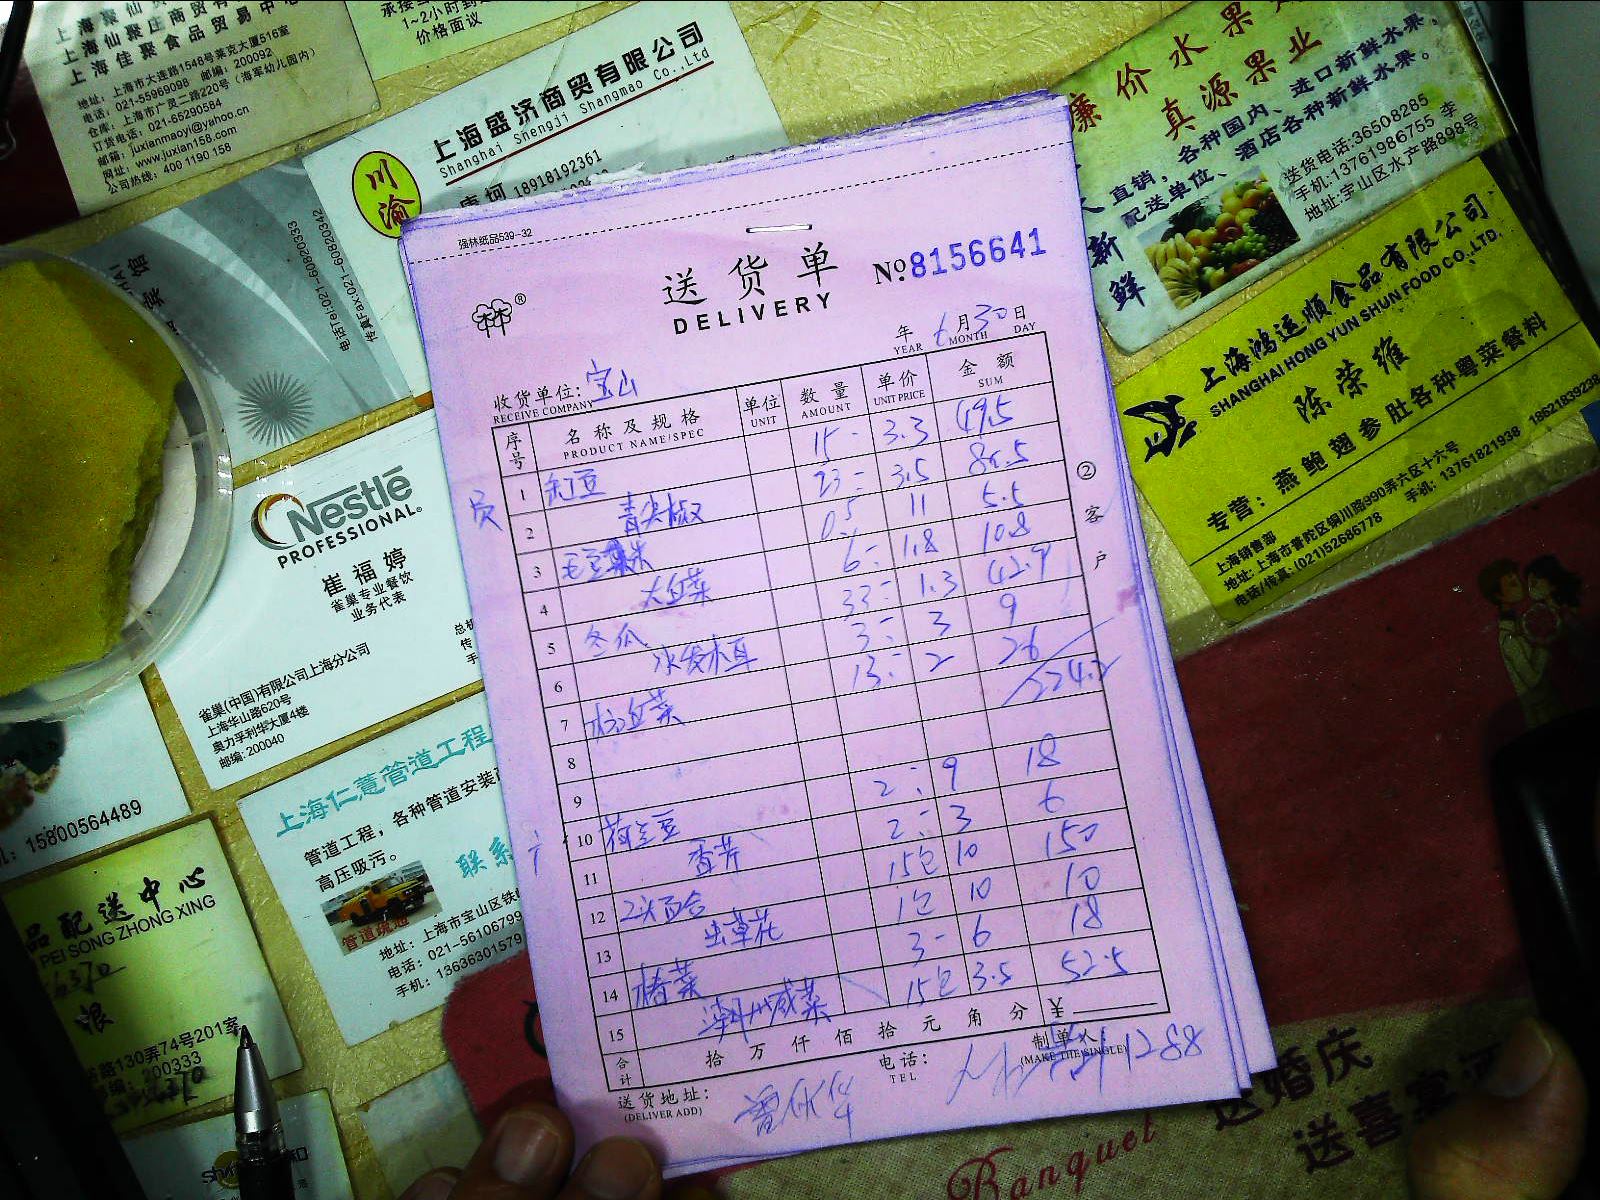 上海仙聚庄商贸有
上海佳聚食品贸易中心
地址：上海市大连路1548号莱克大厦516室
电话：021-55969098 邮编：200092
仓库：上海市广灵二路220号（海军幼儿园内）
订货电话：021-65290584
邮箱：juxianmaoyi@yahoo.cn
网址：www.juxian158.com
公司热线：400 1190 158
1~2小时到
价格面议
上海盛济商贸有限公司
Shanghai Shengji Shangmao Co.,Ltd
川渝
18918192361
电话Tel:021-60820333
传真Fax:021-60820342
廉价水果
真源果业
直销，各种国内、进口新鲜水果，
配送单位、酒店各种新鲜水果。
新鲜
送货电话:36508285
手机:13761986755 李
地址:宝山区水产路898号
上海鸿运顺食品有限公司
SHANGHAI HONG YUN SHUN FOOD CO.,LTD.
陈荣维
专营：燕鲍翅参肚各种粤菜餐料
上海销售部
地址：上海市普陀区铜川路990弄六区十六号
电话/传真：(021)52686778 手机：13761821938 18621839238
强林纸品539-32
送货单
DELIVERY
№8156641
年 6月30日
YEAR MONTH DAY
收货单位：宝山
RECEIVE COMPANY
序号 名称及规格 单位 数量 单价 金额
PRODUCT NAME/SPEC UNIT AMOUNT UNIT PRICE SUM
1 缸豆 15- 3.3 49.5
2 青尖椒 23- 3.5
3 0.5 11 5.5
4 6- 1.8 10.8
5 冬瓜 33- 1.3 42.9
6 水发木耳 3- 3 9
7 13- 2 26
224.2
8
9
10 荷兰豆 2- 9 18
11 香芹 2- 3 6
12 百合 15包 10 150
13 虫草花 1包 10 10
14 椿菜 3- 6 18
15 潮州咸菜 15包 3.5 52.5
合计 拾万仟佰拾元角分 ¥
送货地址：
(DELIVER ADD)
电话：
TEL
制单人：
(MAKE THE SINGLE)
1288
②客户
Nestlé
PROFESSIONAL
崔福婷
雀巢专业餐饮
业务代表
雀巢(中国)有限公司上海分公司
上海华山路620号
奥力孚利华大厦4楼
邮编: 200040
上海仁薏管道工程
管道工程，各种管道安装
高压吸污。
联系
管道疏通
地址：上海市宝山区铁
电话：021-56106799
手机：13636301579
15800564489
品配送中心
PEI SONG ZHONG XING
路130弄74号201室
邮编：200333
送婚庆
送喜宴
Banquet